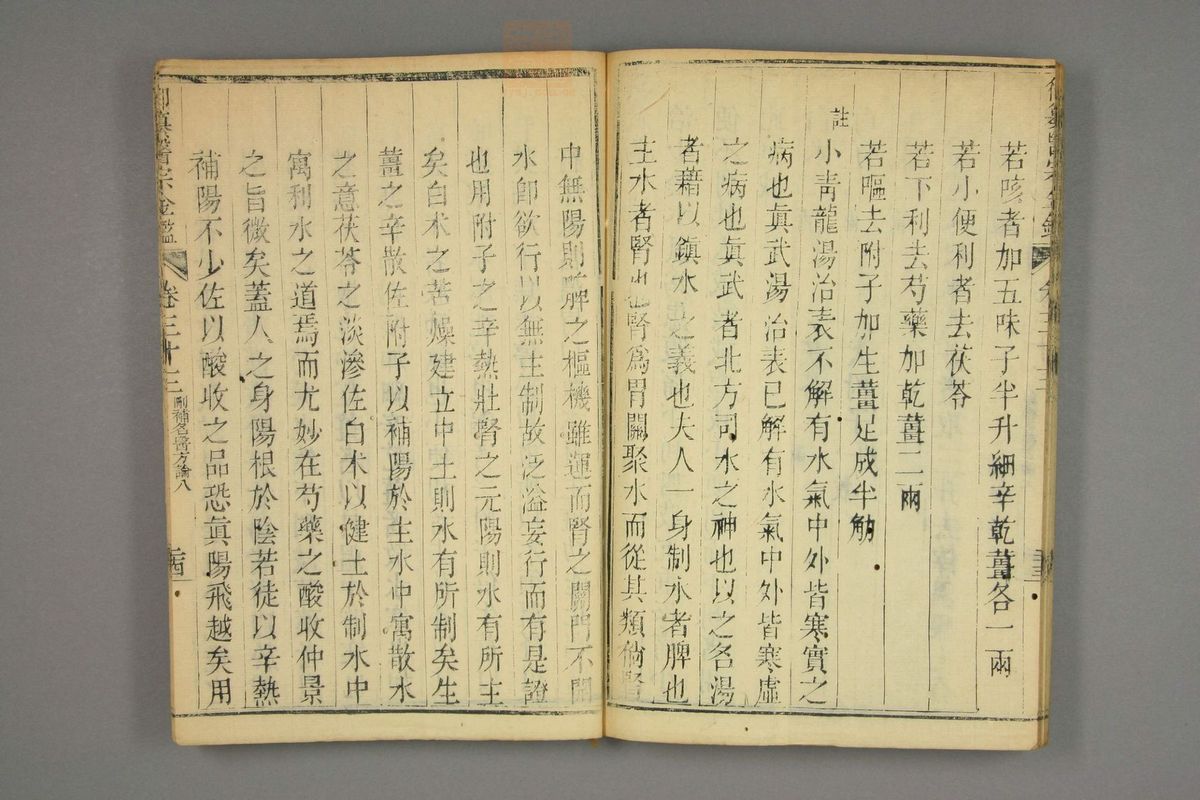 若咳者加五味子半升細辛乾薑各一兩
若小便利者去茯苓
若下利去芍藥加乾薑二兩
若嘔去附子加生薑足成半觔
註
小青龍湯治表不解有水氣中外皆寒實之
病也眞武湯治表已解有水氣中外皆寒虛
之病也眞武者北方司水之神也以之名湯
者藉以鎮水之義也夫人一身制水者脾也
主水者腎也腎爲胃關聚水而從其類倘腎
中無陽則脾之樞機雖運而腎之關門不開
水卽欲行以無主制故泛溢妄行而有是證
也用附子之辛熱壯腎之元陽則水有所主
矣白术之苦燥建立中土則水有所制矣生
薑之辛散佐附子以補陽於主水中寓散水
之意茯苓之淡滲佐白术以健土於制水中
寓利水之道焉而尤妙在芍藥之酸收仲景
之旨微矣蓋人之身陽根於陰若徒以辛熱
補陽不少佐以酸收之品恐眞陽飛越矣用
御纂醫宗金鑑
卷三十三
刪補名醫方論八